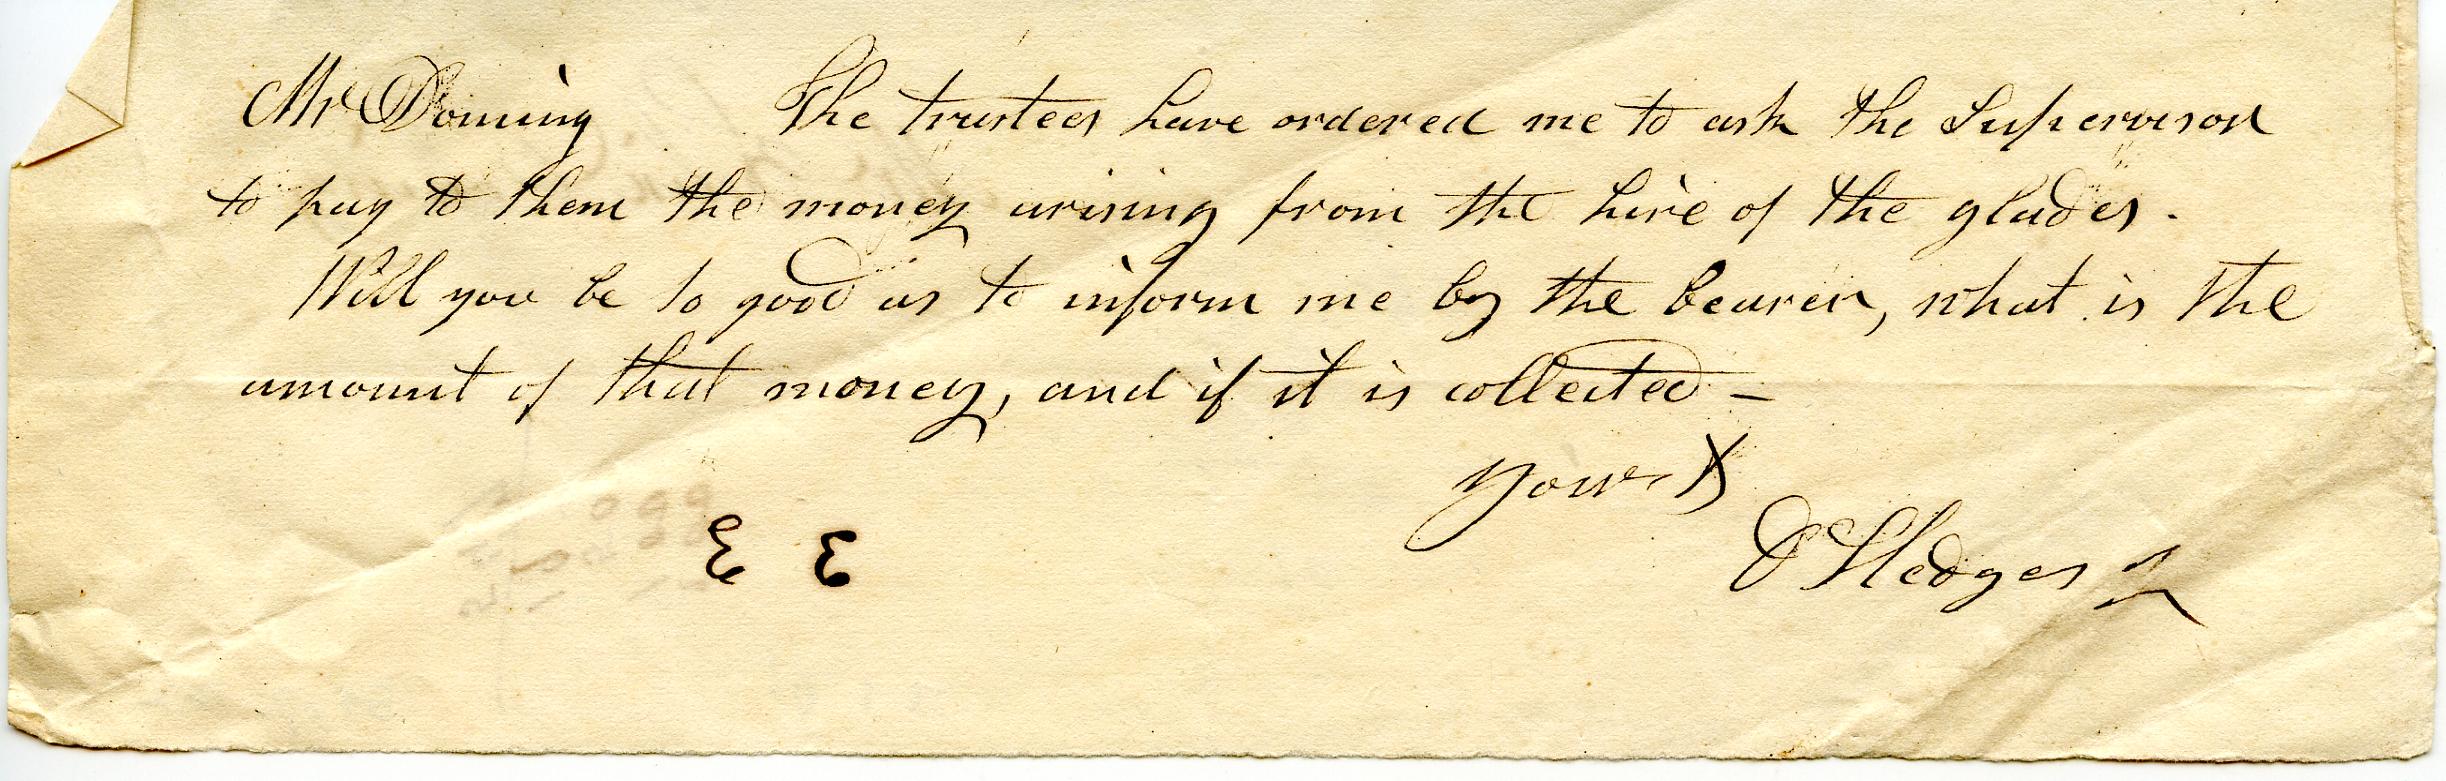 Mr Doming The trustees have ordered me to ask the Supervisor
to pay to them the money arising from the hire of the glades.
Will you be so good as to inform me by the bearer, what is the
amount of that money, and if it is collected –
Yours
Hedges